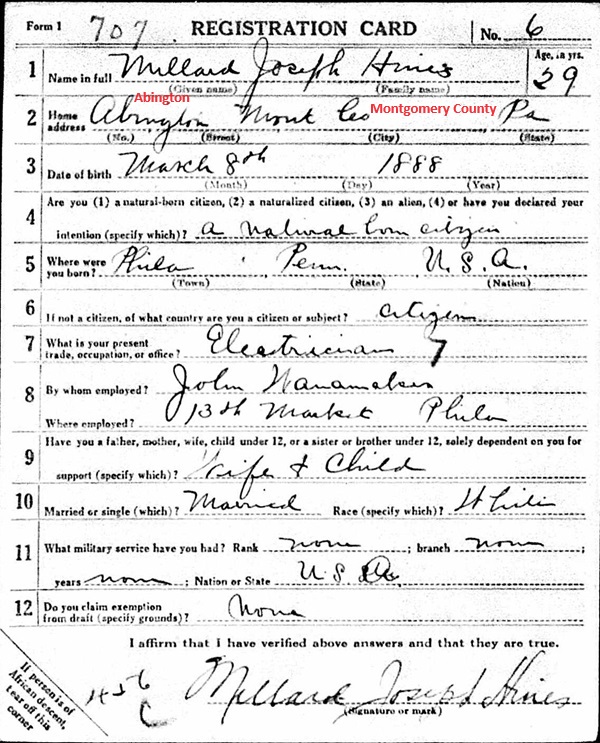 Form 1 707 REGISTRATION CARD No. 6
1 Name in full Millard Joseph Hines Age, in yrs. 29
(Given name) (Family name)
Abington Montgomery County
2 Home address Abington Mont Co Pa
(No.) (Street) (City) (State)
3 Date of birth March 8th 1888
(Month) (Day) (Year)
4 Are you (1) a natural-born citizen, (2) a naturalized citizen, (3) an alien, (4) or have you declared your
intention (specify which)? a natural born citizen
5 Where were you born? Phila Penn. U. S. A.
(Town) (State) (Nation)
6 If not a citizen, of what country are you a citizen or subject? citizen
7 What is your present
trade, occupation, or office? Electrician 7
8 By whom employed? John Wanamaker
Where employed? 13th Market Phila
9 Have you a father, mother, wife, child under 12, or a sister or brother under 12, solely dependent on you for
support (specify which)? Wife & Child
10 Married or single (which)? Married Race (specify which)?
11 What military service have you had? Rank none ; branch none ;
years none ; Nation or State U S A.
12 Do you claim exemption
from draft (specify grounds)? None
I affirm that I have verified above answers and that they are true.
If person is of
African descent,
tear off this
corner
456
C
Millard Joseph Hines
(Signature or mark)